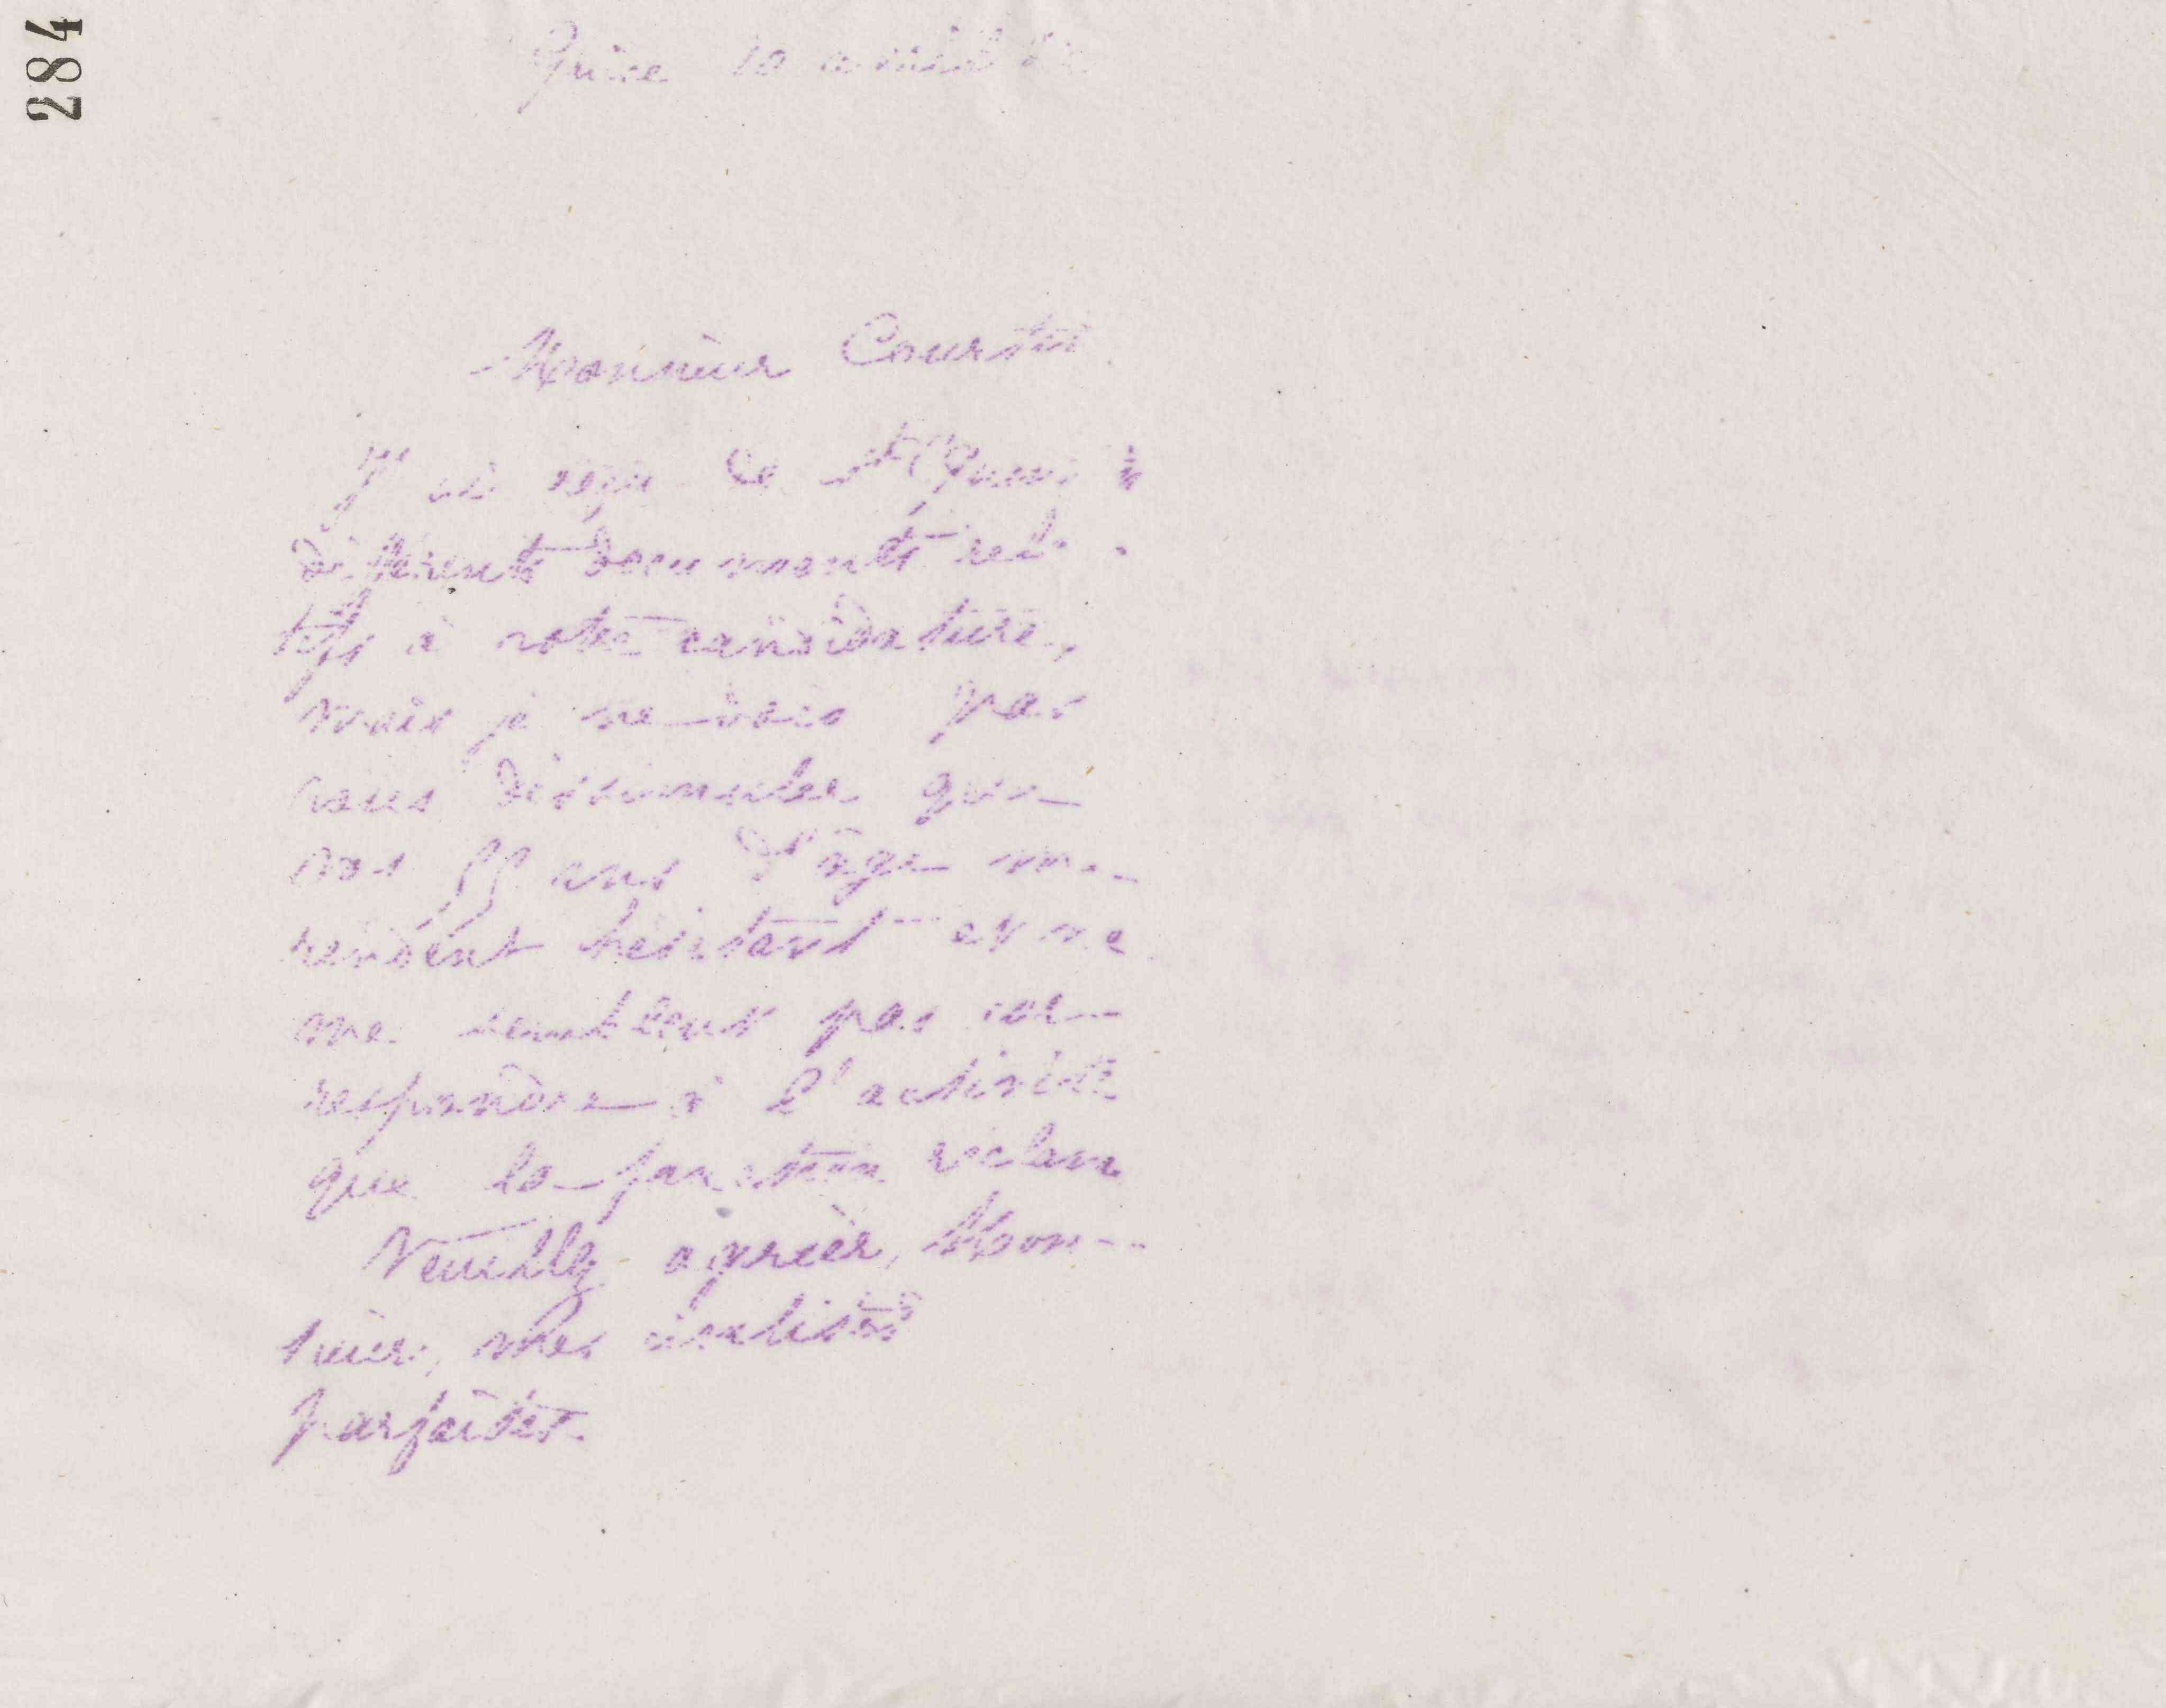 284
Guise 10 avril
Monsieur Courtois
J'ai reçu de St Quentin
différents documents rela
tifs à votre candidature,
mais je ne dois pas
vous dissimuler que
vos 55 ans d'âge me
rendent hésitant et ne
me semblent pas cor
respondre à l'activité
que la fonction réclame
Veuillez agréer, Mon
sieur, mes civilités
parfaites.